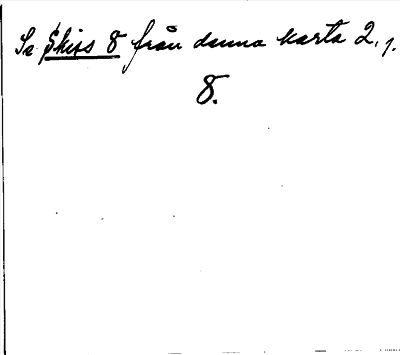 Se Skiss 8 från denna karta 2, p.
8.